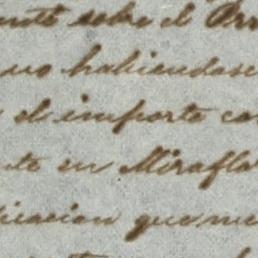 ente sobre el Arr
no habiendose
el importe ca
te en Mirafla
icacion que me